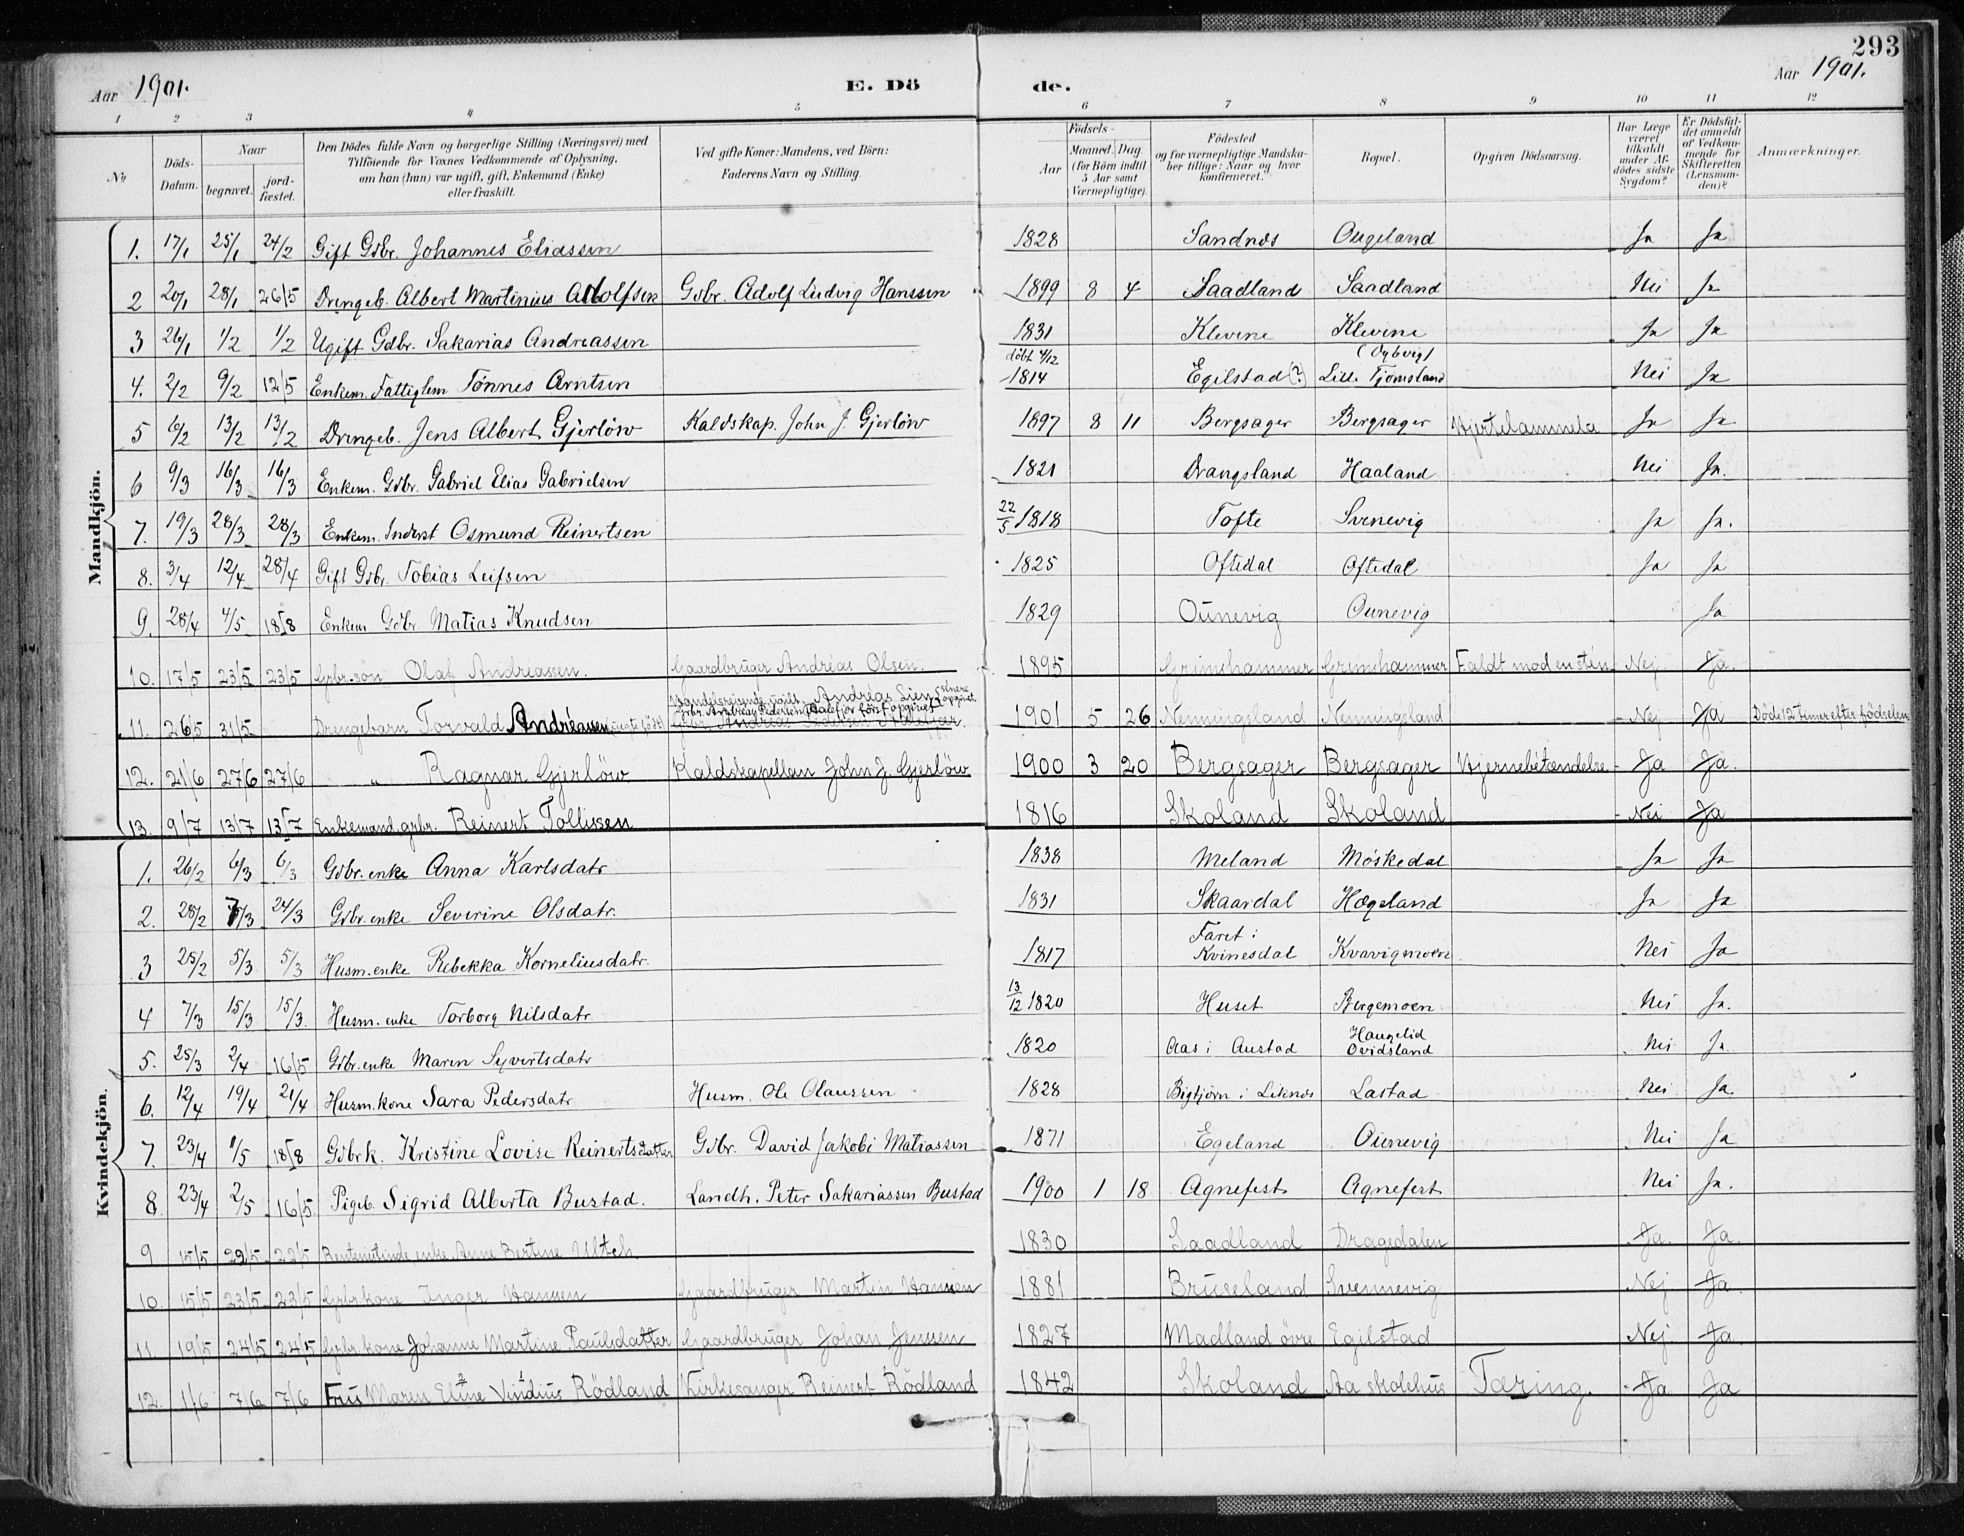 293
Aar 1901. E. Dö de. Aar 1901.
1 2 3 4 5 6 7 8 9 10 11 12
No. Döds-Datum. Naar begravet. jord-fæstet. Den Dödes fulde Navn og borgerlige Stilling (Næringsvei) med Tilföiende for Voxnes Vedkommende af Oplysning, om han (hun) var ugift, gift, Enkemand (Enke) eller fraskilt. Ved gifte Koner: Mandens, ved Börn: Faderens Navn og Stilling. Födsels- Aar Maaned. Dag. (for Börn indtil 5 Aar samt Værnepligtige). Födested og for værnepligtige Mandskaber tillige: Naar og hvor konfirmeret. Bopæl. Opgiven Dödsaarsag. Har Læge været tilkaldt under Afdödes sidste Sygdom? Er Dödsfaldet anmeldt af Vedkommende for Skifteretten (Lensmanden)? Anmærkninger.
Mandkjön.
1. 17/1 25/1 24/2 Gift Gdbr. Johannes Eliassen 1828 Sandnes Øugeland Ja Ja
2 20/1 28/1 26/5 Drengeb. Albert Martinius Adolfsen Gdbr. Adolf Ludvig Hanssen 1899 8 4 Saadland Saadland Nei Ja
3 26/1 1/2 1/2 Ugift Gdbr. Sakarias Andreassen 1831 Klevene Klevene Ja Ja
4. 2/2 9/2 12/5 Enkem. Fattiglem Tönnes Arntsen döbt 4/12 1814 Egilstad (?) (Nybvig) Lille Tjomsland Nei Ja
5 6/2 13/2 13/2 Drengeb. Jens Albert Gjerlöw Kaldskap. John J. Gjerlöw 1897 8 11 Bergsager Bergsager Ja Ja
6 9/3 16/3 16/3 Enkem. Gdbr. Gabriel Elias Gabrielsen 1821 Drangsland Haaland Nei Ja.
7. 19/3 28/3 28/3 Enkem. Inderst Osmund Reinertsen 22/5 1818 Tofte Svenevig Ja Ja.
8. 3/4 12/4 28/4 Gift Gdbr. Tobias Leifsen 1825 Oftedal Oftedal Ja Ja
9. 28/4 4/5 18/8 Enkem Gdbr. Matias Knudsen 1829 Ounevig Ounevig Ja
10. 17/5 23/5 23/5 Gbr.sön Olaf Andreassen. Gaardbruger Andréas Olsen. 1895 Grimshammer Grimshammer Faldt mod en sten Nej. Ja.
11. 26/5 31/5 Drengebarn Torvald Andréassen Andréas Lien 1901 5 26 Nennungsland Nennungsland Nej Ja Döde 12 timer efter födselen
12. 21/6 27/6 27/6 " Ragnar Gjerlöw Kaldskapellan John J. Gjerlöw 1900 3 20 Bergsager Bergsager Hjernebetændelse Ja Ja.
13. 9/7 13/7 13/7 Enkemand, grbr. Reinert Tollissen 1816 Skoland Skoland Nei Ja
Kvindekjön.
1. 26/2 6/3 6/3 Gdbr. enke Anna Karlsdatr 1838 Meland Möskedal Ja Ja
2. 28/2 7/3 24/3 Gdbr. enke Severine Olsdatr. 1831 Skaardal Hægeland Ja Ja
3 25/2 5/3 5/3 Husm. enke Rebekka Korneliusdatr. 1817 Faret i Kvinesdal Kvavigmoen Nei Ja
4 7/3 15/3 15/3. Husm. enke Torborg Nilsdatr. 13/12 1820 Huset Bergemoen. Nei Ja.
5. 25/3 2/4 16/5 Gdbr. enke Maren Syvertsdatr 1820 Aas i Austad Haugelid Ovidsland Nei Ja.
6. 12/4 19/4 21/4 Husm. kone Sara Pedersdatr Husm. Ole Olaussen 1828 Bigtjörn i Liknes Lastad Nei Ja.
7. 23/4 1/5 18/8 Gdbrk. Kristine Lovise Reinertsdatter Gdbr. David Jakobi Matiassen 1871 Egeland Ounevig Nei Ja
8 23/4 2/5 16/5 Pigeb. Sigrid Alberta Bustad. Landh. Peter Sakariassen Bustad 1900 1 18 Agnefest Agnefest Nei Ja.
9 15/5 22/5 22/5 enke Anne Bertine Ultch 1830 Saadland Dragedalen Ja. Ja.
10. 15/5 23/5 23/5 Gbrkone Inger Hansen Gaardbruger Martin Hansen 1881 Bruseland Svennevig Nej Ja.
11. 19/5 24/5 24/5 Gbr. kone Johanne Martine Paulsdatter Gaardbruger Johan Jensen 1827 Madland övre Egilstad Nej Ja.
12. 1/6 7/6 7/6 Fru Maren Eline Vindius Rödland Kirkesanger Reinert Rödland 1842 Skoland Aa skolehus Tæring. Ja Ja